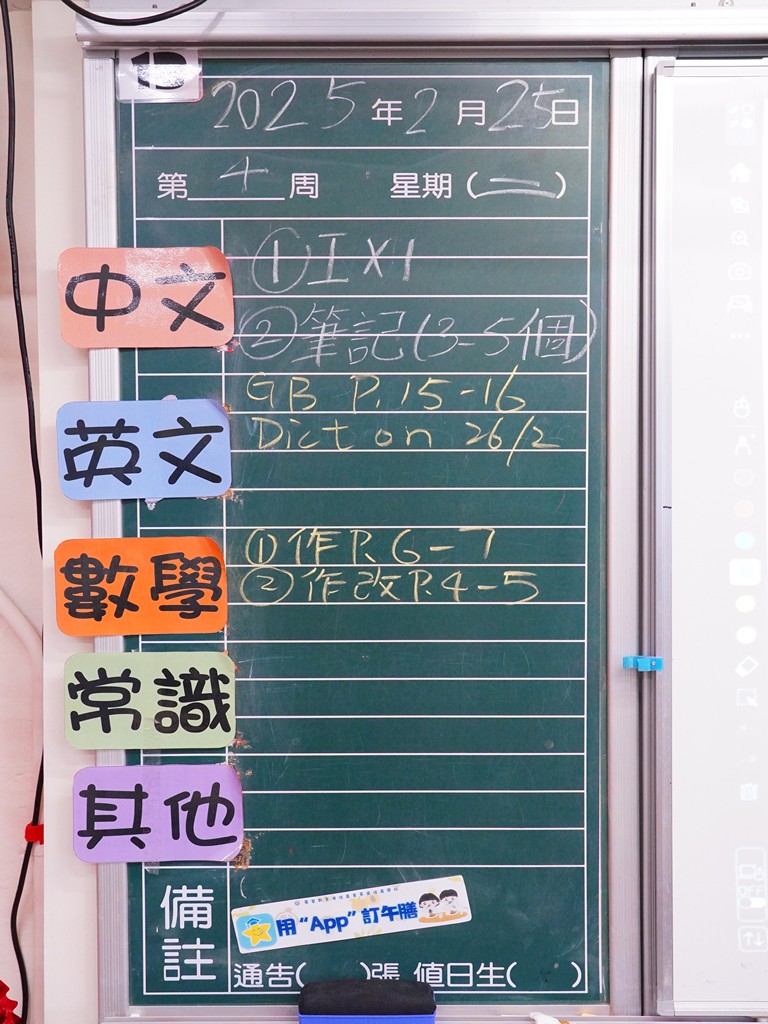 1D
2025年2月25日
第 4 周 星期（二）
中文
①工X1
②筆記(3-5個)
英文
GB P.15-16
Dict on 26/2
數學
①作P.6-7
②作改P.4-5
常識
其他
備註
用“App”訂午膳
通告( )張 值日生( )
OFF